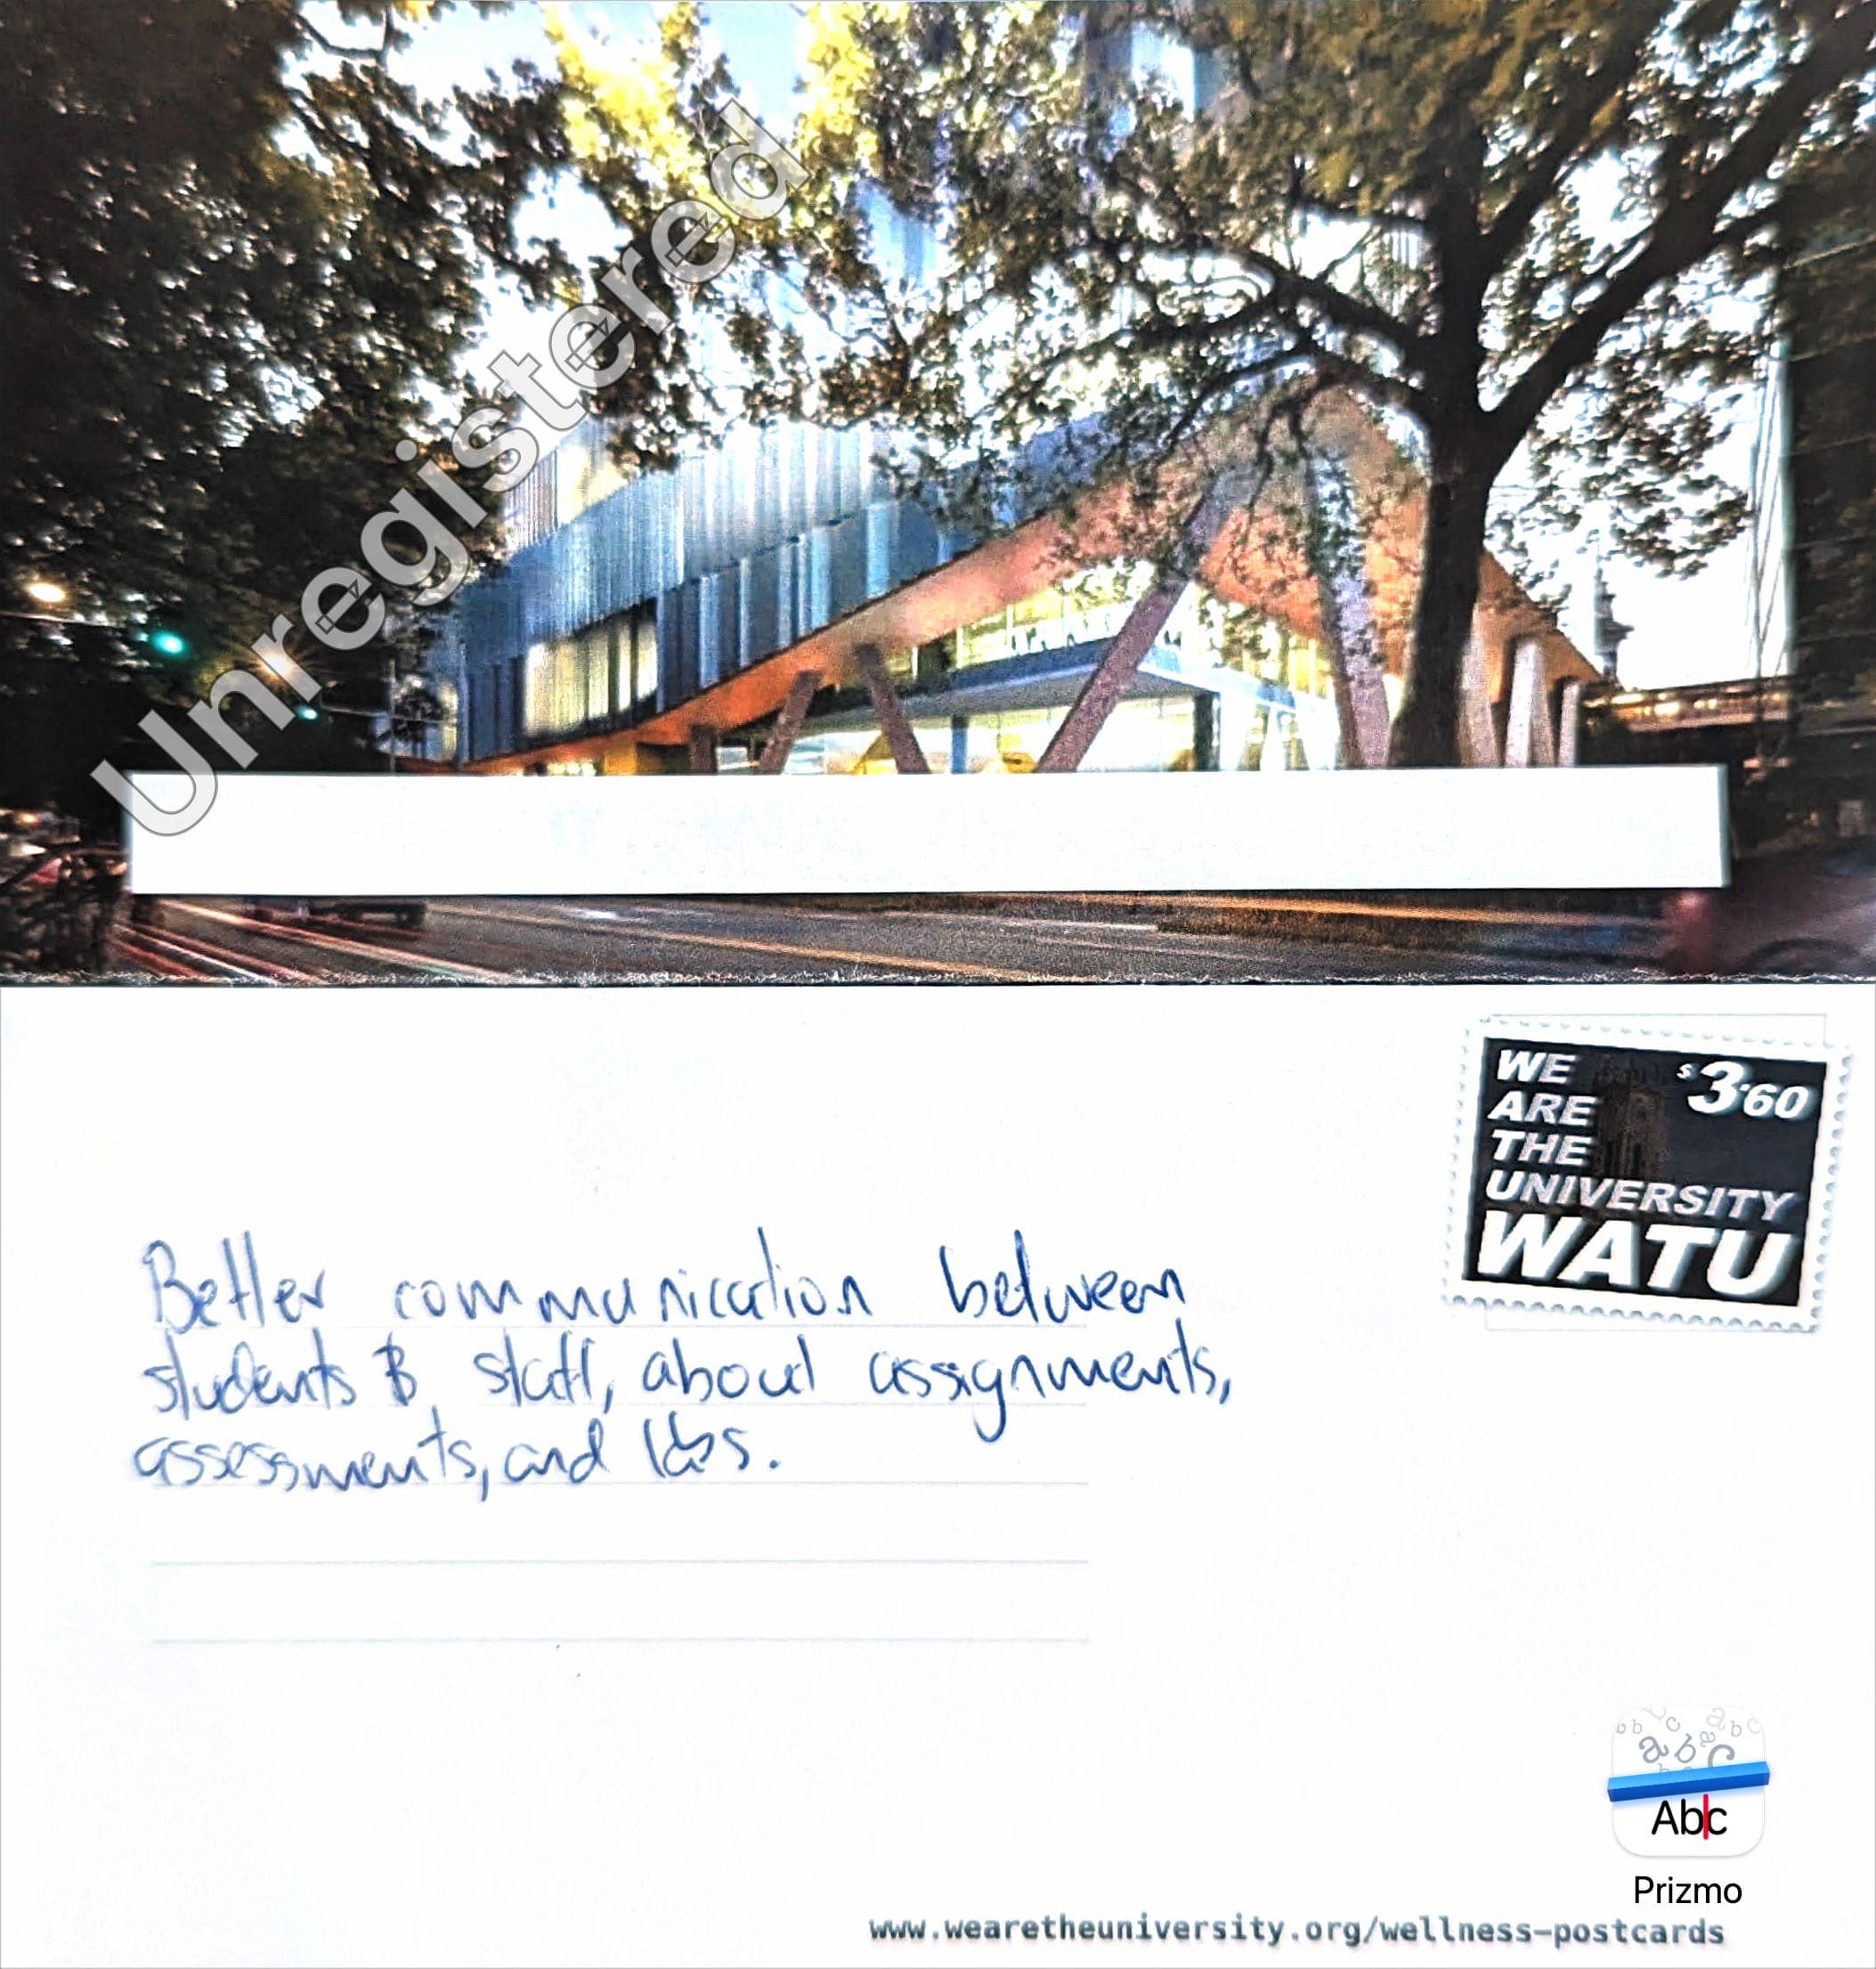 Unregistered
WE
ARE
THE
UNIVERSITY
WATU
$3.60
Better communication between
students & staff, about assignments,
assessments, and labs.
Abc
Prizmo
www.wearetheuniversity.org/wellness-postcards